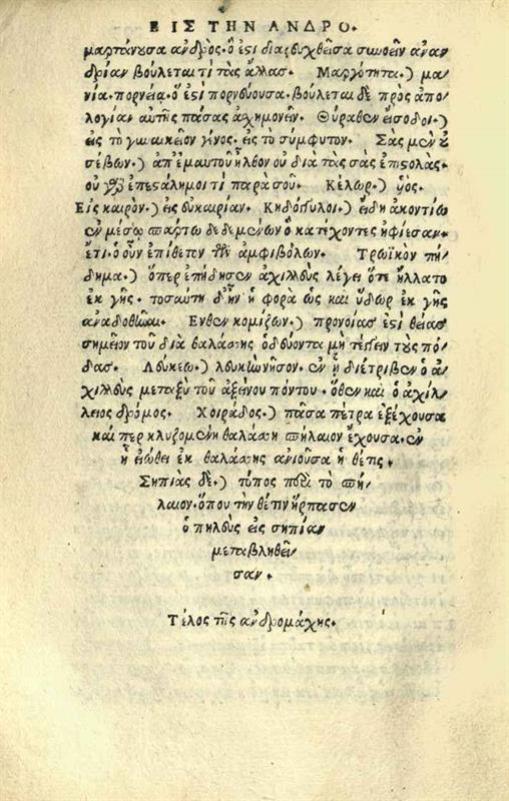 ΕΙΣ ΤΗΝ ΑΝΔΡΟ.
μαρτάνουσα ἀνδρὸς. ὅ ἐστι διαζευχθεῖσα σωοεῖν ἀναν
δρίαν βούλεται τὶ τὰς ἄλλας. Μαργότητα.) μα/
νία. πορνεία. ὅ ἐστὶ πορνεύουσα. βούλεται δὲ πρὸς ἀπο/
λογίαν αὐτῆς πάσας ἀσχημονεῖν. Θύραθεν εἴσοδοι.)
εἰς τὸ γυναικεῖον γένος. εἰς τὸ σύμφυτον. Σὰς μὲν οὐ
σέβων.) ἀπ' ἐμαυτοῦ ἦλθον οὐ διὰ τὰς σὰς ἐπιστολὰς.
οὐ γὰρ ἐπεστάλη μοι τὶ παρὰ σοῦ. Κέλωρ.) ὑὸς.
Εἰς καιρὸν.) εἰς εὐκαιρίαν. Κηδόπυλοι.) εἴδη ἀκοντίω
ἐν μέσῳ δεδεμένων ὁ κατέχοντες ἠφίεσαν.
ἔτι. ὁ οὖν ἐπίθετον τῶν ἀμφιβόλων. Τρωϊκὸν πή/
δημα.) ὅπερ ἐπήδησεν ἀχιλλεὺς λέγει ὅτε ἥλλατο
ἐκ γῆς. τοσαύτη δ' ἦν ἡ φορὰ ὡς καὶ ὕδωρ ἐκ γῆς
ἀναδοθῆναι. Ενθεν κομίζων.) προνοίας ἐστὶ θείας
σημεῖον τοῦ διὰ θαλάσσης ὁδεύοντα μὴ τέγγειν τοὺς πό/
δας. Λεύκεω.) λευκὴν νῆσον. ἐν ᾗ διέτριβεν ὁ ἀ/
χιλλεὺς μεταξὺ τοῦ ἀξένου πόντου. ὅθεν καὶ ὁ ἀχίλ/
λειος δρόμος. Χοιράδος.) πᾶσα πέτρα ἐξέχουσα
καίπερ κλυζομένη θαλάσσῃ σπήλαιον ἔχουσα. ἐν
ᾗ εἰώθει ἐκ θαλάσσης ἀνιοῦσα ἡ θέτις.
Σηπιὰς δὲ.) τόπος περὶ τὸ σπή/
λαιον. ὅπου τὴν θέτιν ἥρπασεν
ὁ πηλεὺς εἰς σηπίαν
μεταβληθεῖ
σαν.
Τέλος τῆς ἀνδρομάχης.